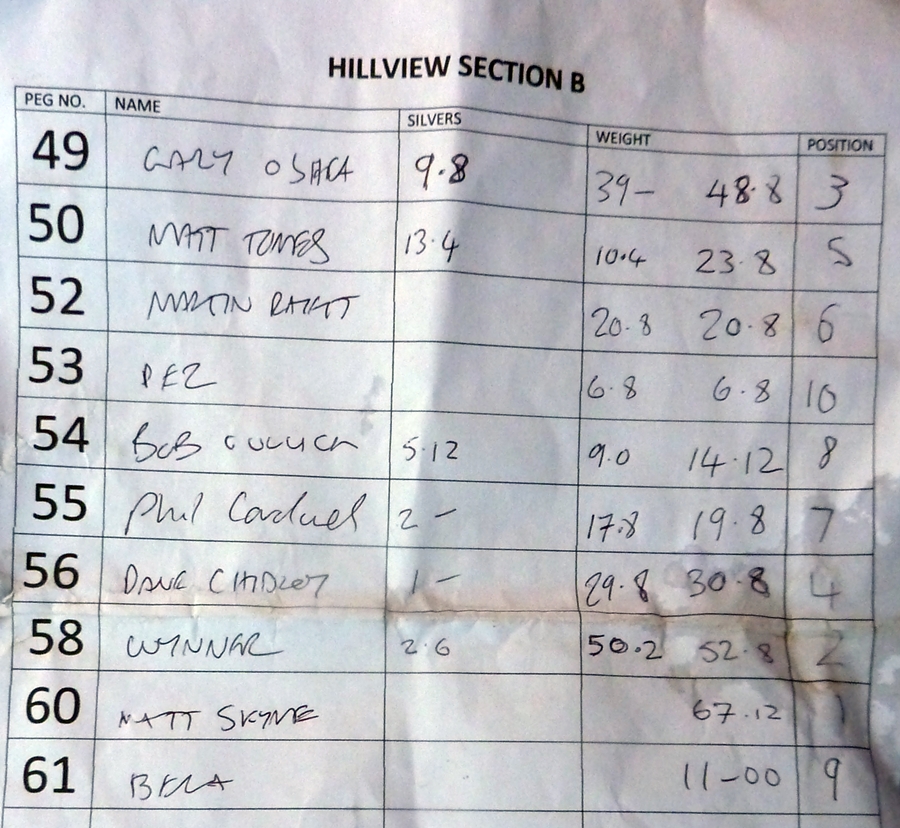 HILLVIEW SECTION B
PEG NO. NAME SILVERS WEIGHT POSITION
49 GARY O SHEA 9.8 39- 48.8 3
50 MATT TOMES 13.4 10.4 23.8 5
52 MARTIN 20.8 20.8 6
53 DEZ 6.8 6.8 10
54 BOB GULLICK 5.12 9.0 14.12 8
55 Phil Cardwell 2 - 17.8 19.8 7
56 DAVE CHIDLEY 1 - 29.8 30.8 4
58 WYNNER 2.6 50.2 52.8 2
60 MATT SKYME 67.12 1
61 BELA 11-00 9